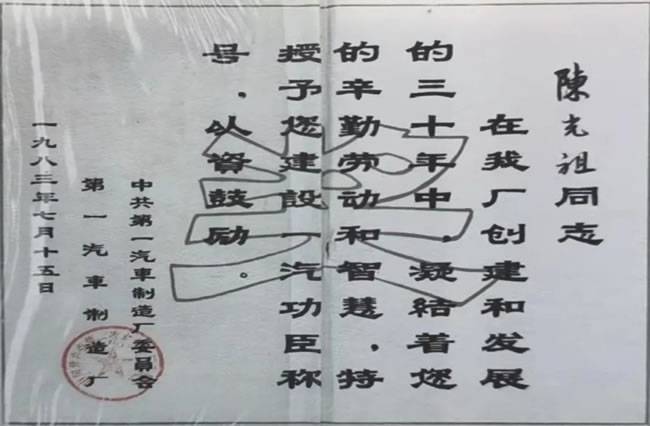 陳光祖同志
在我厂创建和发展
的三十年中,凝結着您
的辛勤劳动和智慧,特
授予您建設一汽功臣称
号,以資鼓励。
中共第一汽車制造厂委員会
第一汽車制造厂
一九八三年七月十五日